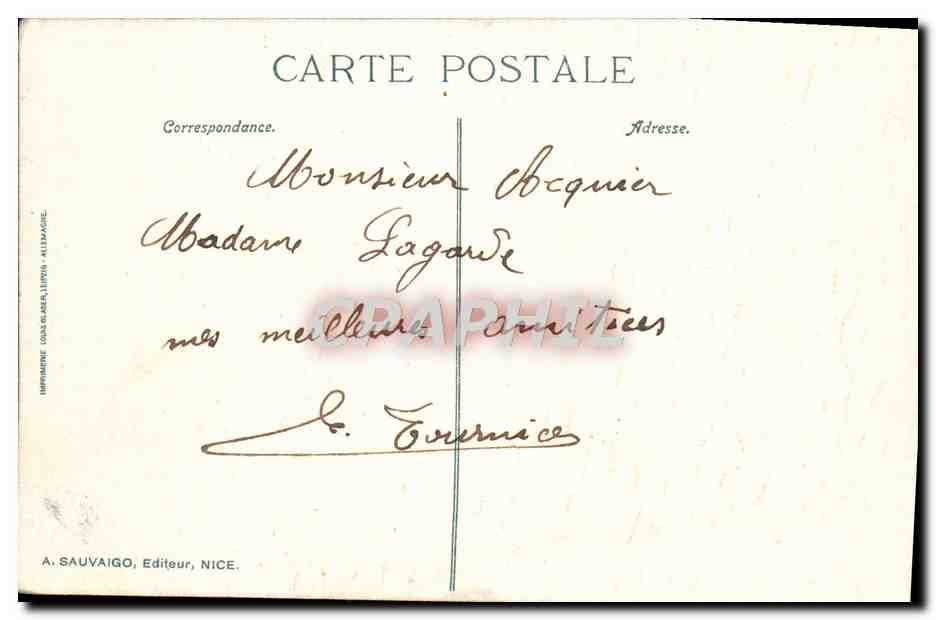 CARTE POSTALE
Correspondance. Adresse.
Monsieur Acquier
Madame Lagarde
mes meilleures amitiées
CPAPHIL
IMPRIMERIE LOUIS GLASER, LEIPZIG - ALLEMAGNE.
A. SAUVAIGO, Editeur, NICE.